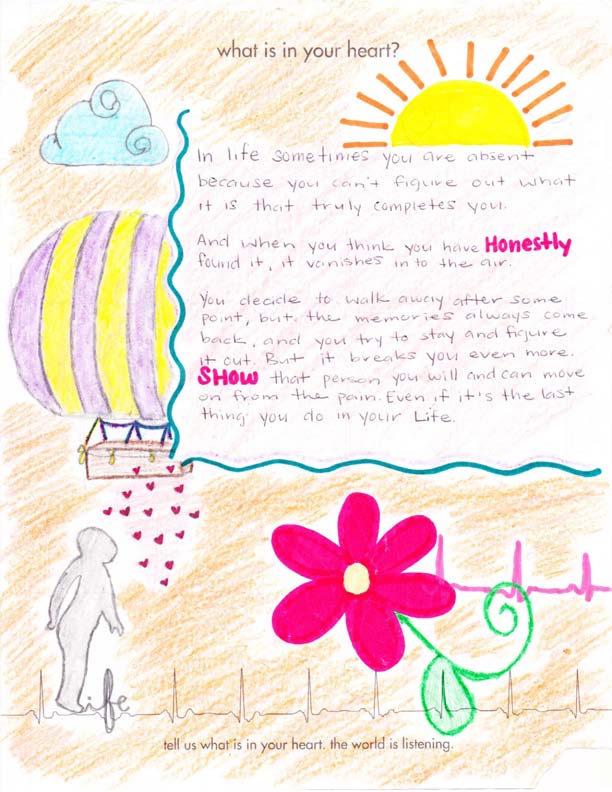 what is in your heart?
In life sometimes you are absent
because you can't figure out what
it is that truly completes you.
And when you think you have Honestly
found it, it vanishes in to the air.
You decide to walk away after some
point, but the memories always come
back, and you try to stay and figure
it out. But it breaks you even more.
SHOW that person you will and can move
on from the pain. Even if it's the last
thing you do in your Life.
life
tell us what is in your heart. the world is listening.